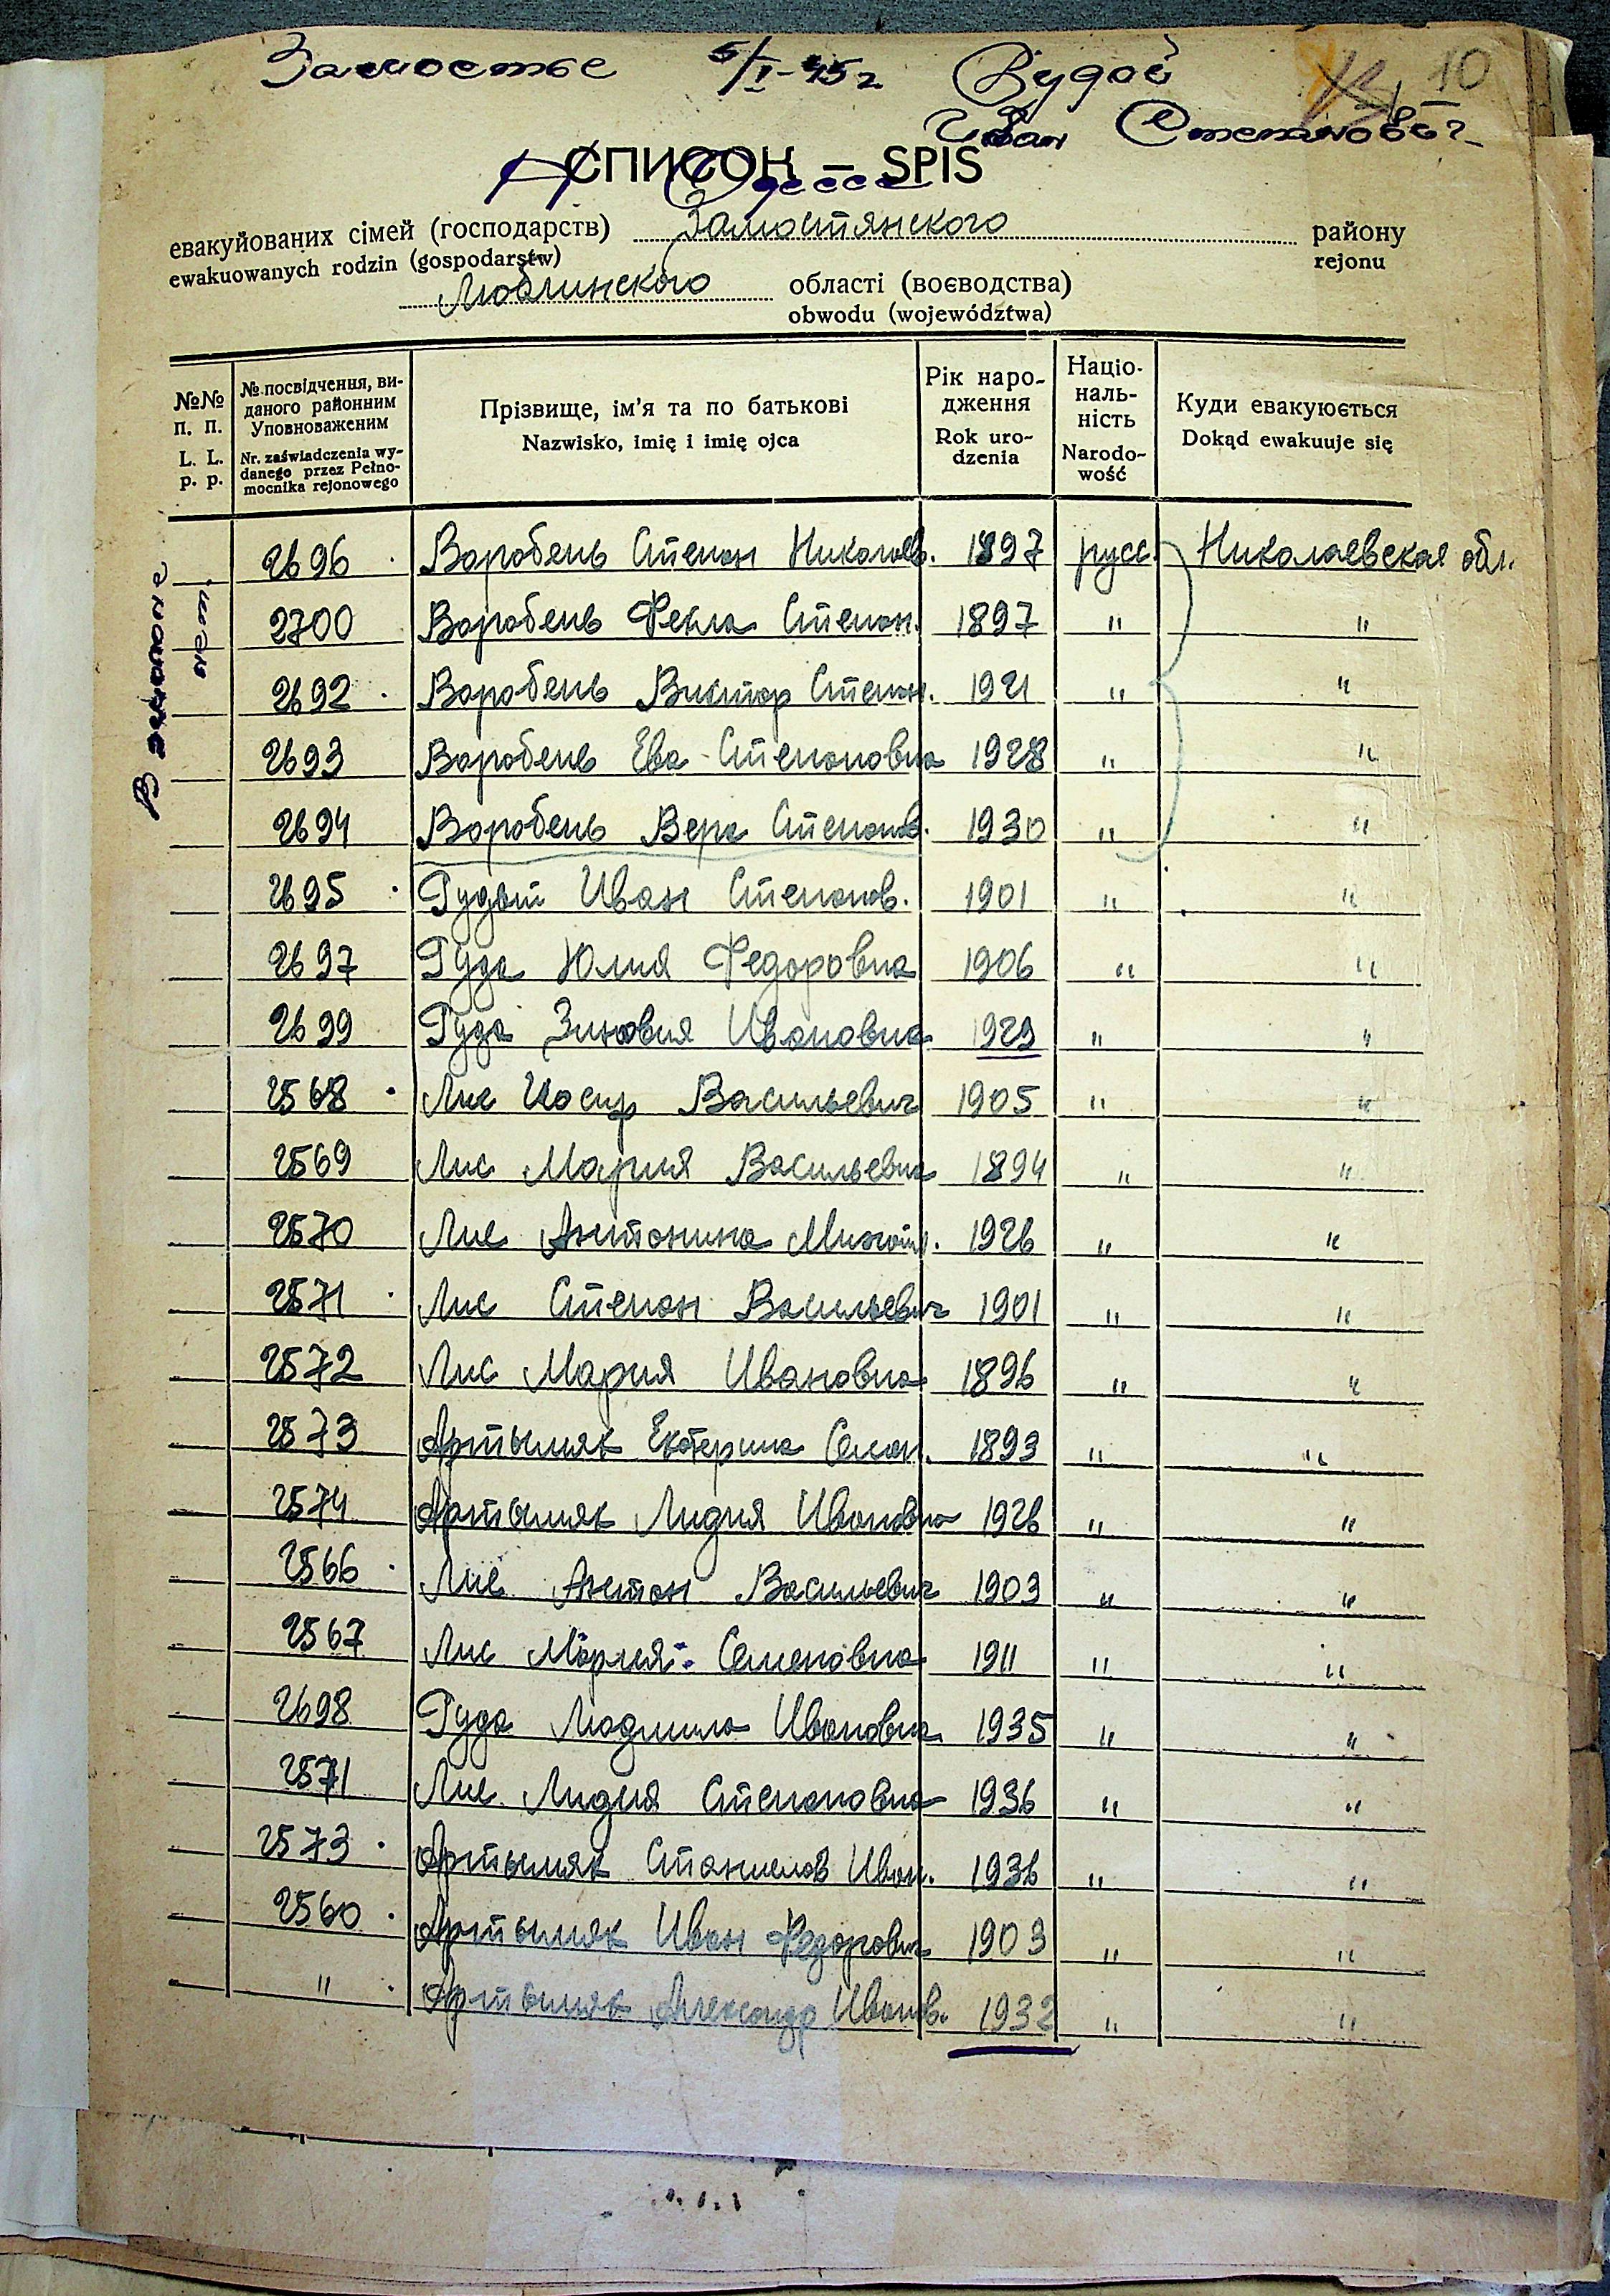 Замостье 5/I-45г. Вудой 10
Иван Степанович
СПИСОК — SPIS
Одесса
евакуйованих сімей (господарств) Замостянского району
ewakuowanych rodzin (gospodarstw) rejonu
Люблинского області (воєводства)
obwodu (województwa)
№№ п. п. L. L. p. p.
№ посвідчення, виданого районним Уповноваженим Nr. zaświadczenia wydanego przez Pełnomocnika rejonowego
Прізвище, ім'я та по батькові Nazwisko, imię i imię ojca
Рік народження Rok urodzenia
Національність Narodowość
Куди евакуюється Dokąd ewakuuje się
2696 Воробень Степан Николаев. 1897 русс. Николаевская обл.
2700 Воробень Фекла Степан. 1897 " "
2692 Воробень Виктор Степан. 1921 " "
2693 Воробень Ева Степановна 1928 " "
2694 Воробень Вера Степанов. 1930 " "
2695 Гудый Иван Степанов. 1901 " "
2697 Гуда Юлия Федоровна 1906 " "
2699 Гуда Зиновия Ивановна 1929 " "
2568 Лис Иосир Васильевич 1905 " "
2569 Лис Мария Васильевна 1894 " "
2570 Лис Антонина Михайл. 1926 " "
2571 Лис Степан Васильевич 1901 " "
2572 Лис Мария Ивановна 1896 " "
2573 Артымяк Екатерина Семан. 1893 " "
2574 Артымяк Лидия Ивановна 1926 " "
2566 Лис Антон Васильевич 1903 " "
2567 Лис Мария Семеновна 1911 " "
2698 Гуда Людмила Ивановна 1935 " "
2571 Лис Лидия Степановна 1936 " "
2573 Артымяк Станислав Иван. 1936 " "
2560 Артымяк Иван Федорович 1903 " "
" Артымяк Александр Иванов. 1932 " "